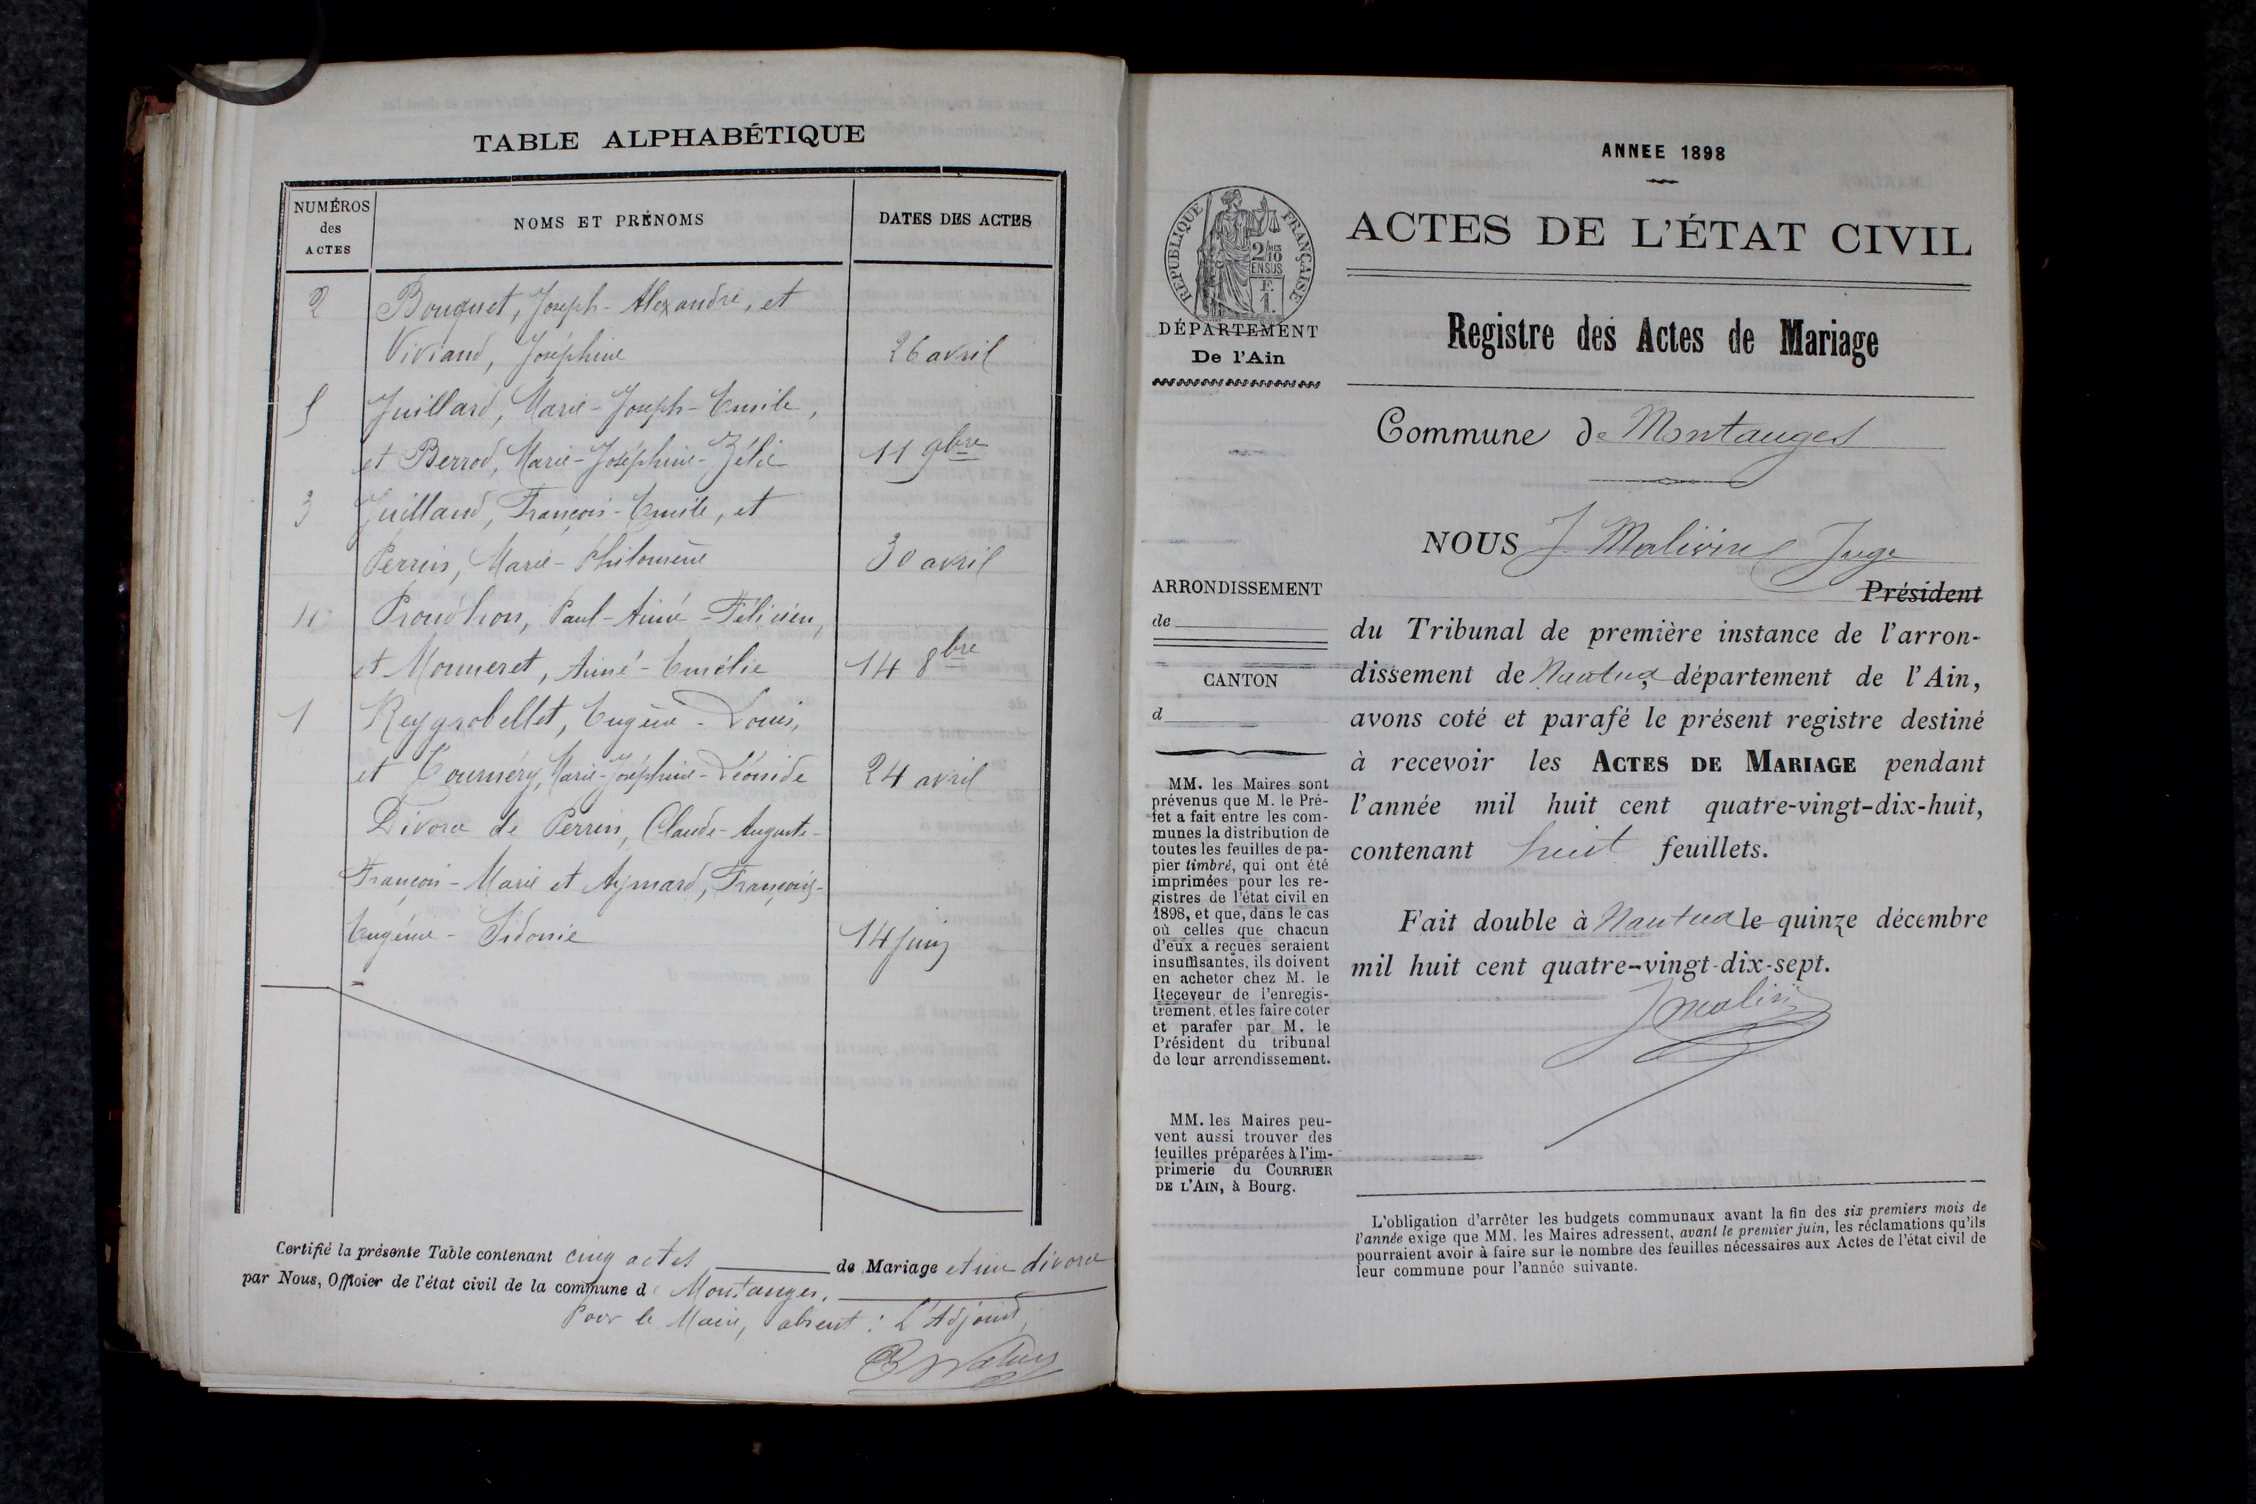 TABLE ALPHABÉTIQUE
NUMÉROS
des
ACTES
NOMS ET PRÉNOMS
DATES DES ACTES
2 Bouquet, Joseph-Alexandre, et
Viviand, Joséphine 26 avril
5 Juillard, Marie-Joseph-Emile,
et Berrod, Marie-Joséphine-Zélie 11 9bre
3 Juilland, François-Emile, et
Perrin, Marie-Philomène 30 avril
4 Proudhon, Paul-Aimé-Félicien,
et Monneret, Aimé-Emélie 14 8bre
1 Reygrobellet, Eugène-Louis,
et Tournéry, Marie-Joséphine-Léonide 24 avril
Divorce de Perrin, Claude-Auguste-
François-Marie et Aymard, François-
Eugénie-Sidonie 14 juin
Certifié la présente Table contenant cinq actes de Mariage et un divorce
par Nous, Officier de l'état civil de la commune d Montanges.
Pour le Maire, absent : L'Adjoint,
ANNEE 1898
RÉPUBLIQUE FRANÇAISE
2/10
EN SUS
F.
1.
DÉPARTEMENT
De l'Ain
ARRONDISSEMENT
de
CANTON
d
MM. les Maires sont
prévenus que M. le Pré-
fet a fait entre les com-
munes la distribution de
toutes les feuilles de pa-
pier timbré, qui ont été
imprimées pour les re-
gistres de l'état civil en
1898, et que, dans le cas
où celles que chacun
d'eux a reçues seraient
insuffisantes, ils doivent
en acheter chez M. le
Receveur de l'enregis-
trement, et les faire coter
et parafer par M. le
Président du tribunal
de leur arrondissement.
MM. les Maires peu-
vent aussi trouver des
feuilles préparées à l'im-
primerie du COURRIER
DE L'AIN, à Bourg.
ACTES DE L'ÉTAT CIVIL
Registre des Actes de Mariage
Commune de Montanges
NOUS J. Malivin Juge
Président
du Tribunal de première instance de l'arron-
dissement de Nantua, département de l'Ain,
avons coté et parafé le présent registre destiné
à recevoir les ACTES DE MARIAGE pendant
l'année mil huit cent quatre-vingt-dix-huit,
contenant huit feuillets.
Fait double à Nantua le quinze décembre
mil huit cent quatre-vingt-dix-sept.
L'obligation d'arrêter les budgets communaux avant la fin des six premiers mois de
l'année exige que MM. les Maires adressent, avant le premier juin, les réclamations qu'ils
pourraient avoir à faire sur le nombre des feuilles nécessaires aux Actes de l'état civil de
leur commune pour l'année suivante.